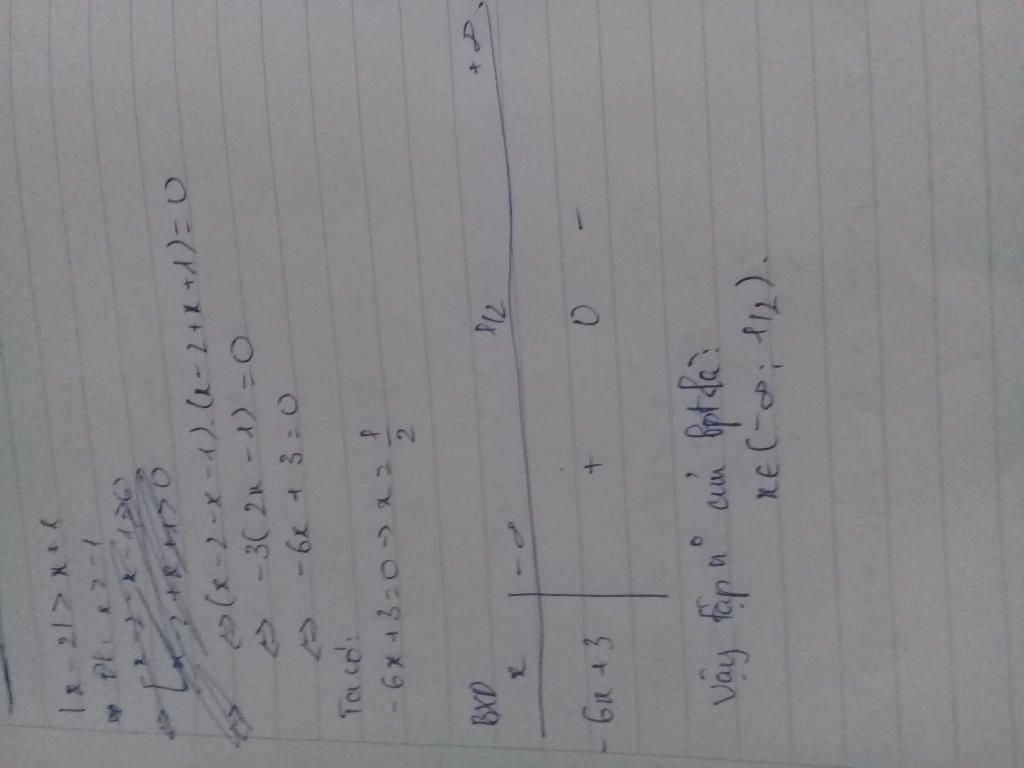 |x - 2| > x + 1
ĐK: x > -1
⇔ [ x - 2 - x - 1 > 0
x - 2 + x + 1 > 0
⇔ (x - 2 - x - 1).(x - 2 + x + 1) = 0
⇔ -3(2x - 1) = 0
⇔ -6x + 3 = 0
Ta có:
-6x + 3 = 0 → x = 1/2
BXD
x -∞ 1/2 +∞
-6x + 3 + 0 -
Vậy tập n° của bpt là:
x ∈ (-∞; 1/2).